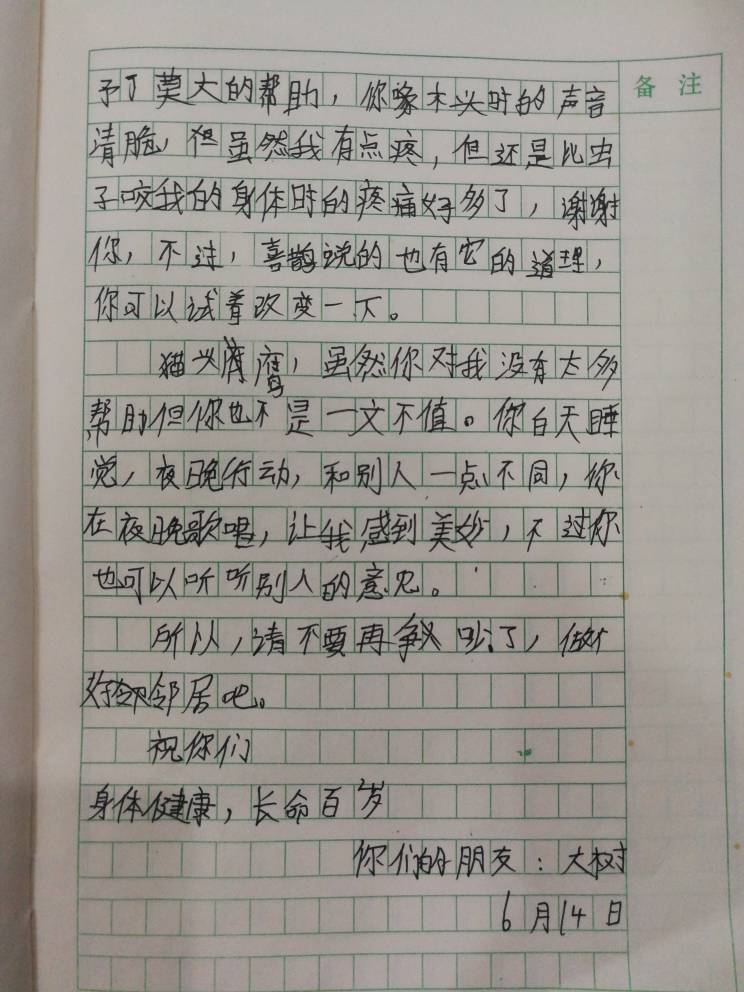 备注
予了莫大的帮助，你啄木头时的声音
清脆，但虽然我有点疼，但还是比虫
子咬我的身体时的疼痛好多了，谢谢
你，不过，喜鹊说的也有它的道理，
你可以试着改变一下。
猫头鹰，虽然你对我没有太多
帮助但你也不是一文不值。你白天睡
觉，夜晚行动，和别人一点不同，你
在夜晚歌唱，让我感到美妙，不过你
也可以听听别人的意见。
所以，请不要再争吵了，做个
好邻居吧。
祝你们
身体健康，长命百岁
你们的朋友：大树
6月14日